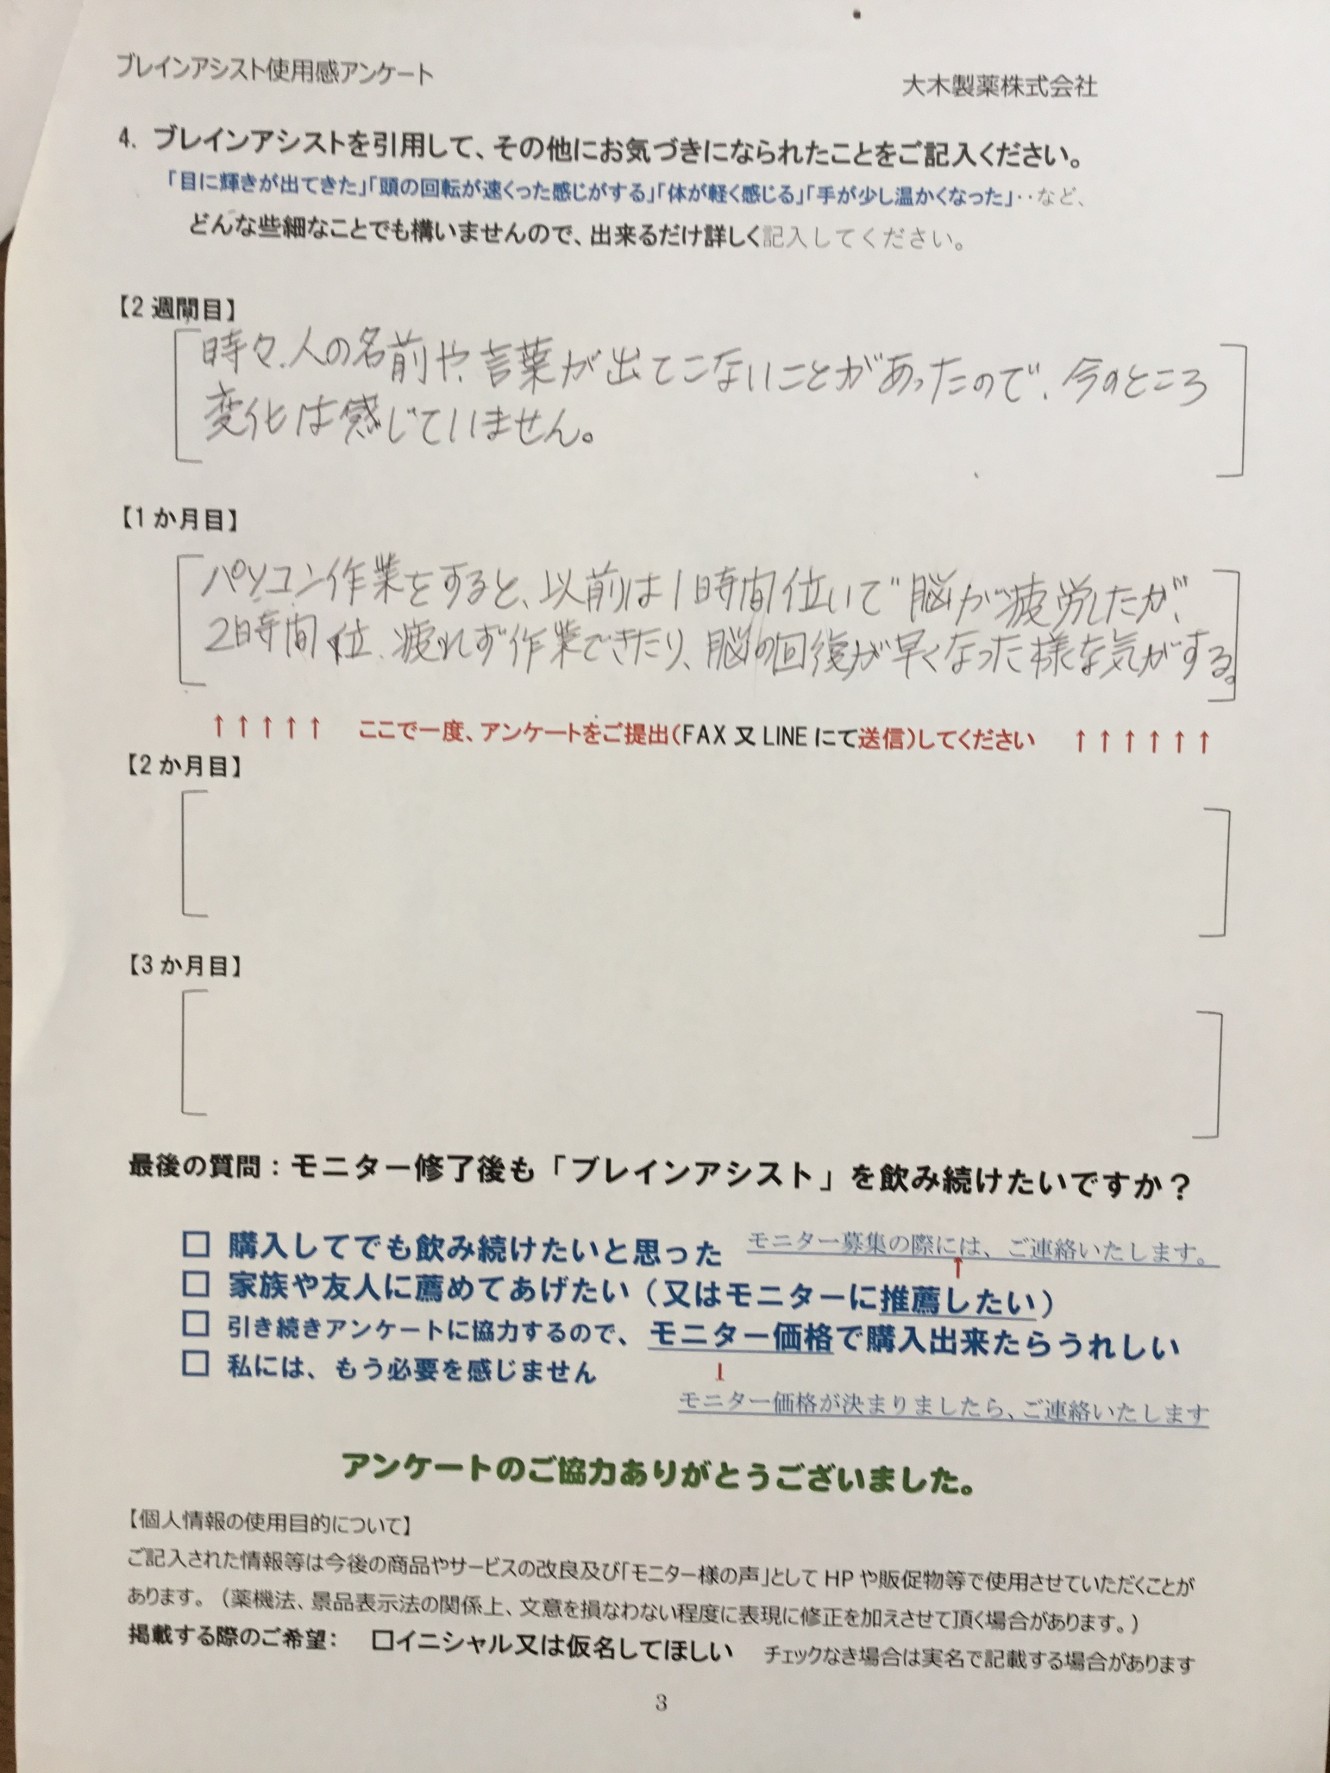 ブレインアシスト使用感アンケート
大木製薬株式会社
4. ブレインアシストを引用して、その他にお気づきになられたことをご記入ください。
「目に輝きが出てきた」「頭の回転が速くった感じがする」「体が軽く感じる」「手が少し温かくなった」‥など、
どんな些細なことでも構いませんので、出来るだけ詳しく記入してください。
【2 週間目】
時々、人の名前や、言葉が出てこないことがあったので、今のところ
変化は感じていません。
【1か月目】
パソコン作業をすると、以前は1時間位いで脳が疲労したが、
2時間位、疲れず作業できたり、脳の回復が早くなった様な気がする。
↑↑↑↑↑ ここで一度、アンケートをご提出(FAX 又 LINE にて送信)してください ↑↑↑↑↑↑
【2か月目】
【3か月目】
最後の質問：モニター修了後も「ブレインアシスト」を飲み続けたいですか？
□ 購入してでも飲み続けたいと思った モニター募集の際には、ご連絡いたします。
↑
□ 家族や友人に薦めてあげたい（又はモニターに推薦したい）
□ 引き続きアンケートに協力するので、モニター価格で購入出来たらうれしい
□ 私には、もう必要を感じません
モニター価格が決まりましたら、ご連絡いたします
アンケートのご協力ありがとうございました。
【個人情報の使用目的について】
ご記入された情報等は今後の商品やサービスの改良及び「モニター様の声」として HP や販促物等で使用させていただくことが
あります。（薬機法、景品表示法の関係上、文意を損なわない程度に表現に修正を加えさせて頂く場合があります。）
掲載する際のご希望： □イニシャル又は仮名してほしい チェックなき場合は実名で記載する場合があります
3